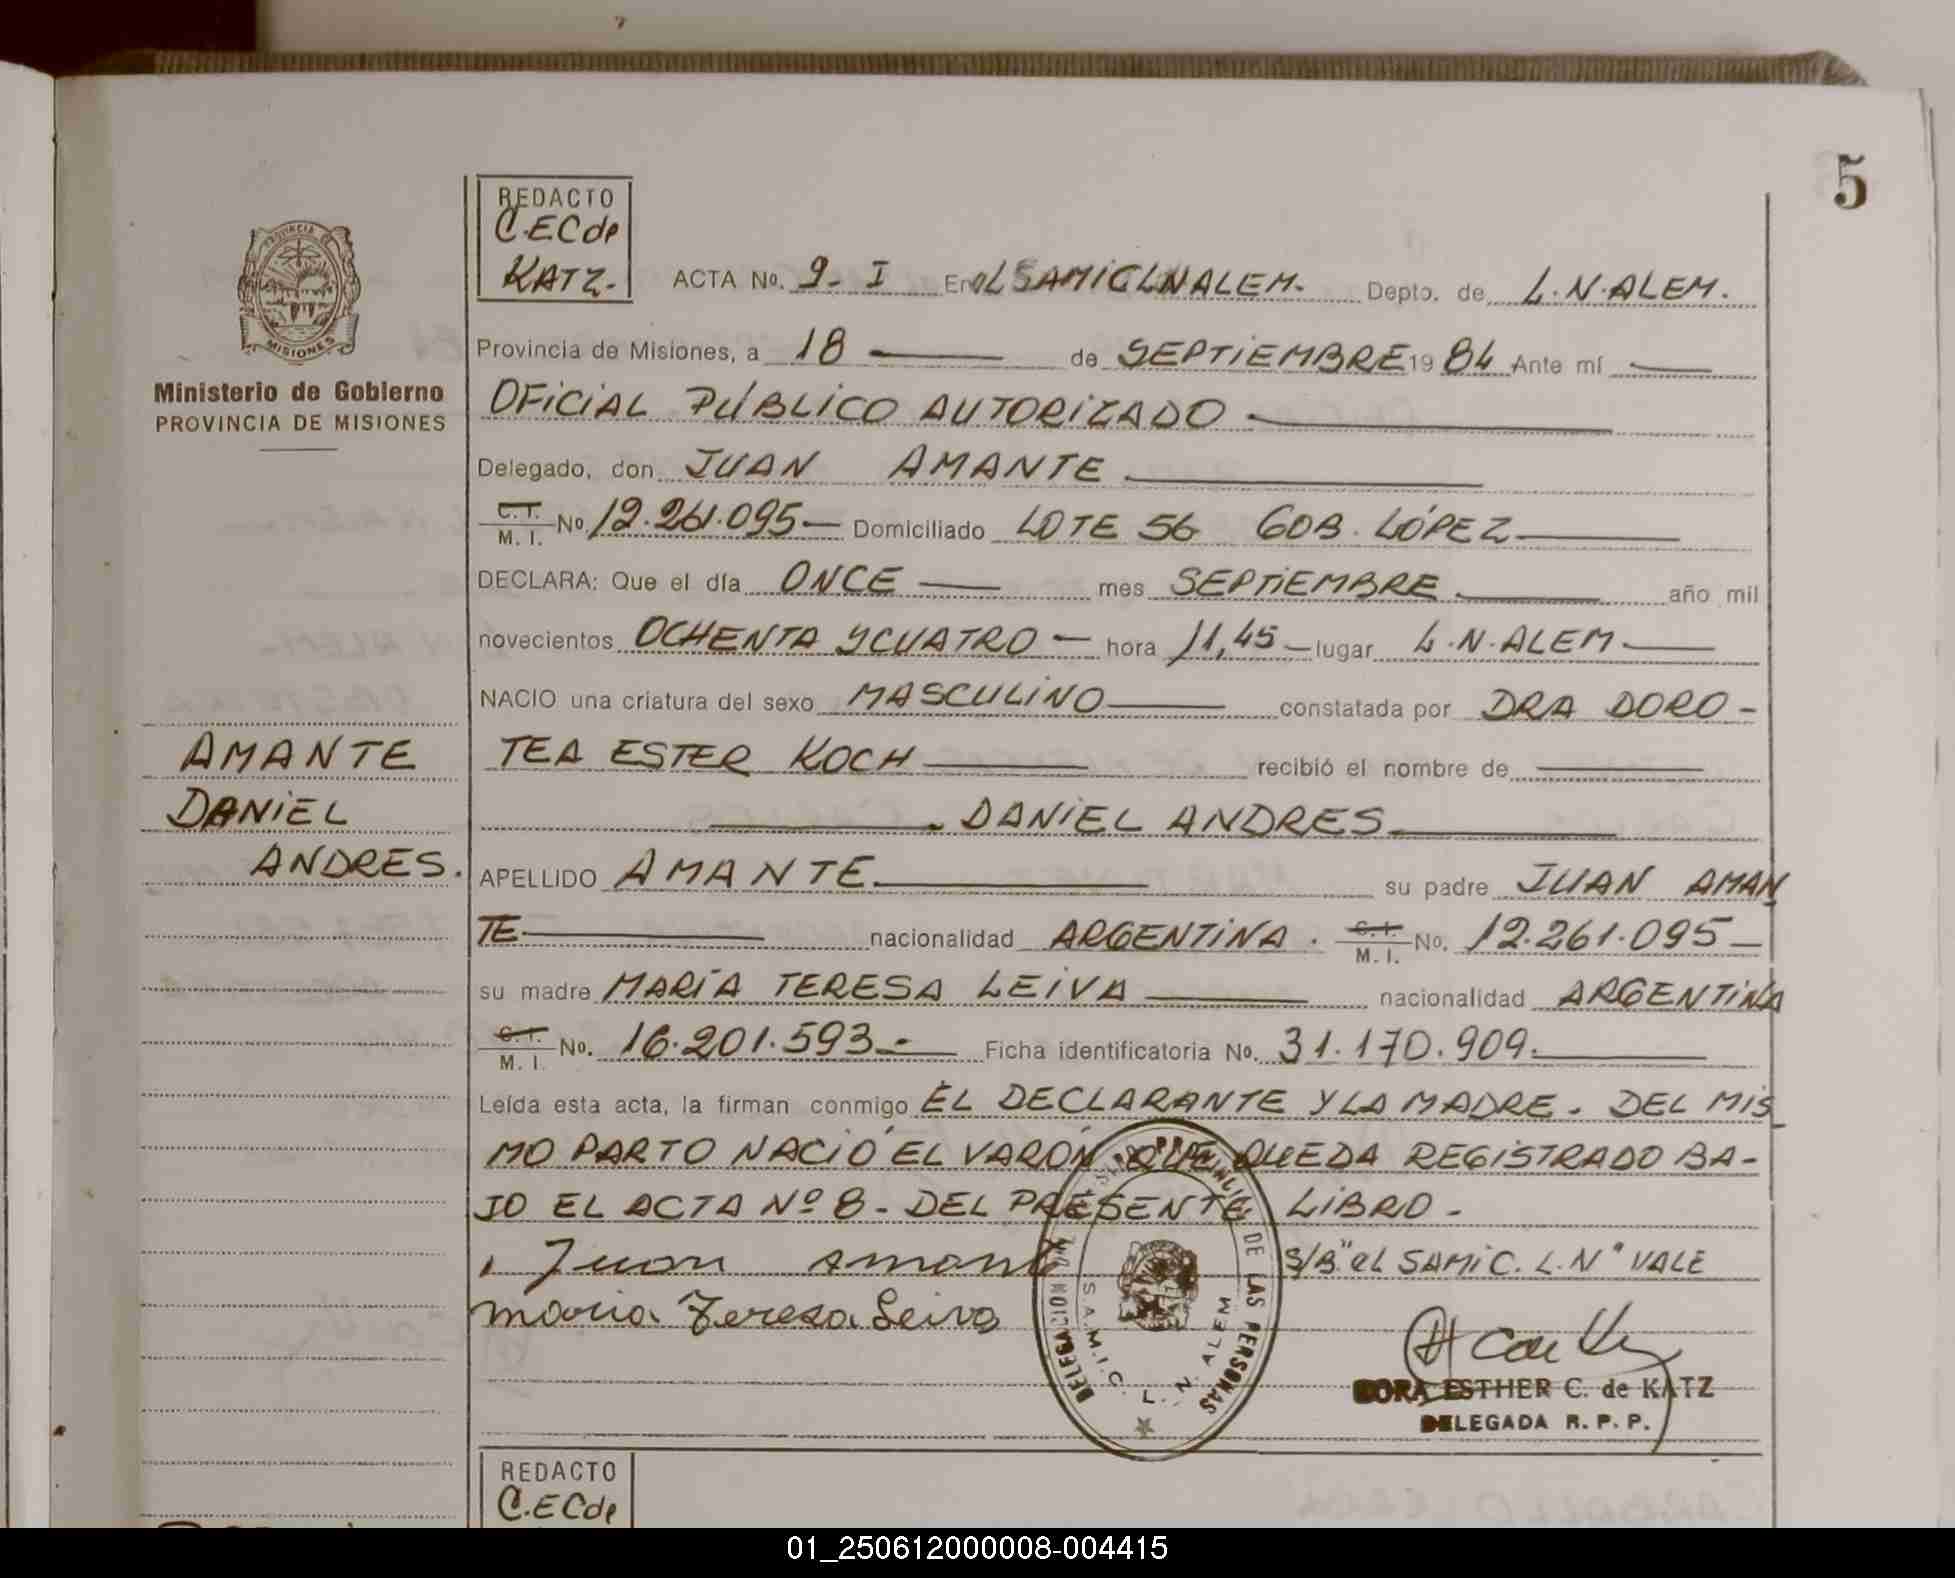 5
REDACTO
C.ECde
KATZ.
ACTA No. 9- I En el SAMIC LN ALEM. Depto. de L.N.ALEM.
PROVINCIA DE
MISIONES
Ministerio de Gobierno
PROVINCIA DE MISIONES
Provincia de Misiones, a 18 de SEPTIEMBRE 19 84 Ante mí
OFICIAL PÚBLICO AUTORIZADO
Delegado, don JUAN AMANTE
C.I. M. I. No. 12.261.095 Domiciliado LOTE 56 GOB. LÓPEZ
DECLARA: Que el día ONCE mes SEPTIEMBRE año mil
novecientos OCHENTA Y CUATRO hora 11,45 lugar L.N.ALEM
NACIO una criatura del sexo MASCULINO constatada por DRA DORO-
TEA ESTER KOCH recibió el nombre de
DANIEL ANDRES
APELLIDO AMANTE su padre JUAN AMAN
TE nacionalidad ARGENTINA. C.I. M. I. No. 12.261.095
su madre MARÍA TERESA LEIVA nacionalidad ARGENTINA
C.I. M. I. No. 16.201.593.- Ficha identificatoria No. 31.170.909.
Leída esta acta, la firman conmigo EL DECLARANTE Y LA MADRE. DEL MIS
MO PARTO NACIÓ EL VARÓN QUE QUEDA REGISTRADO BA-
JO EL ACTA Nº 8- DEL PRESENTE LIBRO.
Juan Amante
S/B "el SAMIC. L.N" VALE
Maria Teresa Leiva
AMANTE
DANIEL
ANDRES.
DE LAS PERSONAS
S.A.M.I.C. L. N. ALEM
DORA ESTHER C. de KATZ
DELEGADA R. P. P.
REDACTO
C.ECde
01_250612000008-004415